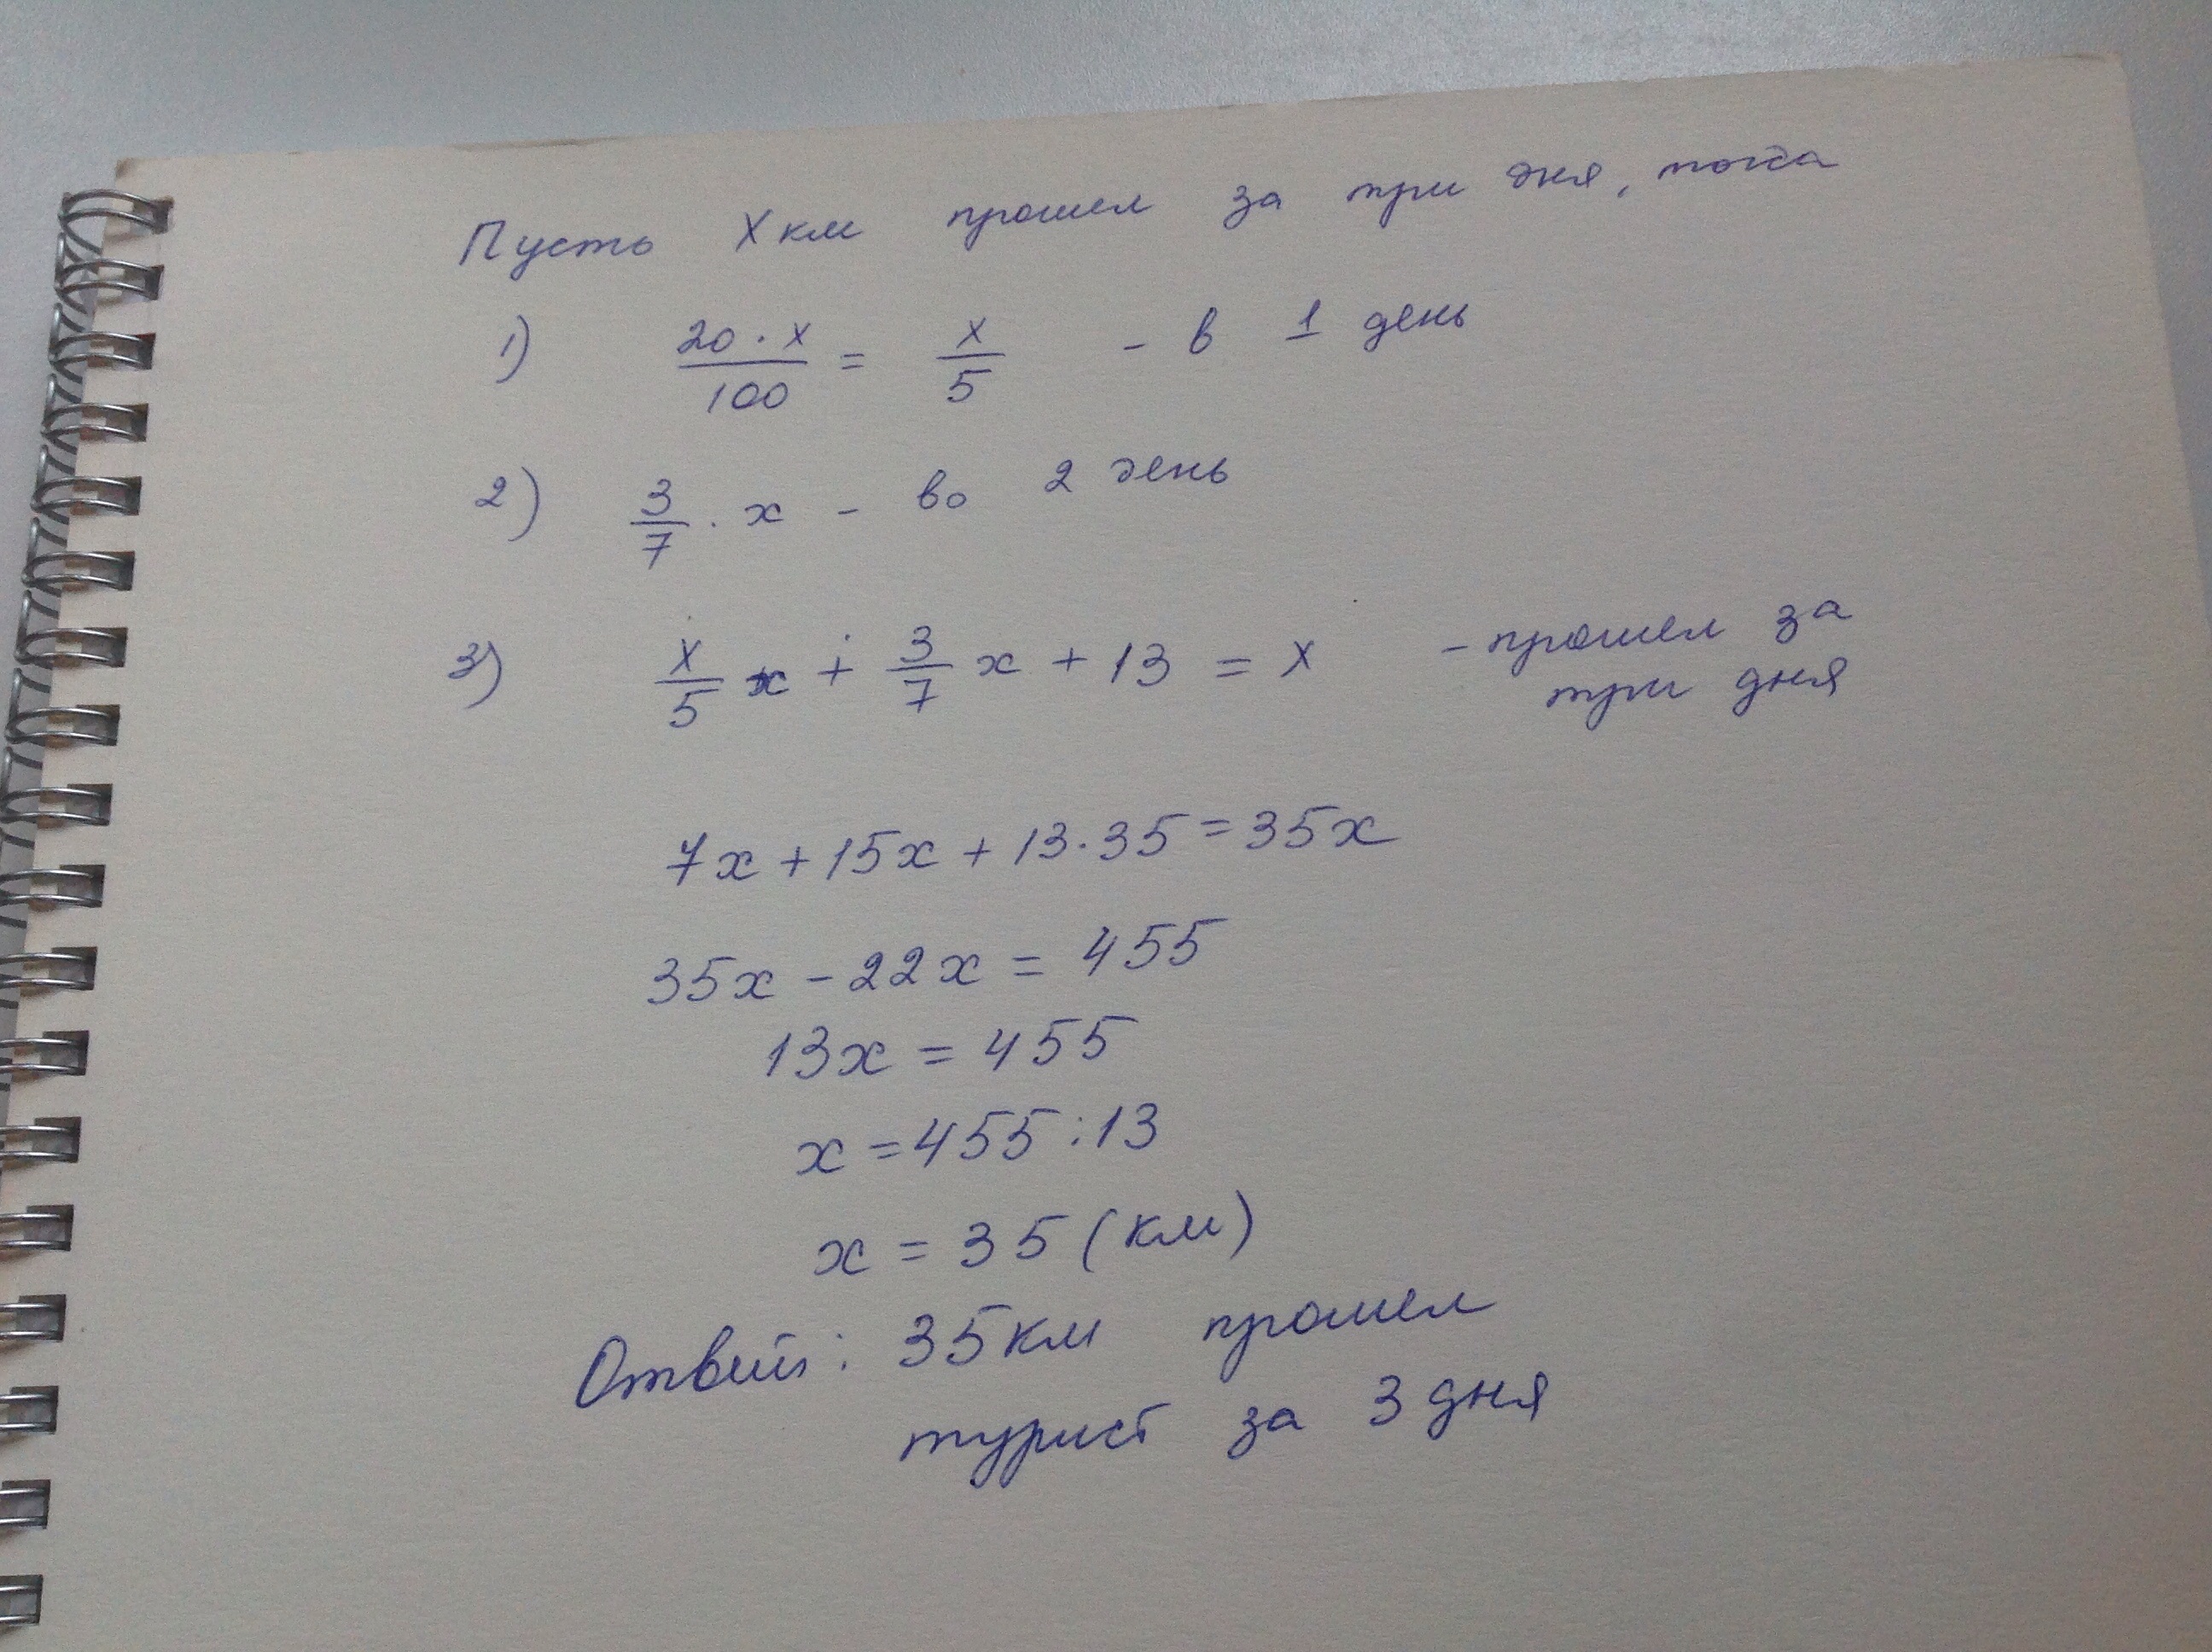 Пусть X км прошел за три дня, тогда
1) 20·x/100 = x/5 - в 1 день
2) 3/7 · x - во 2 день
3) x/5 x + 3/7 x + 13 = x - прошел за
три дня
7x + 15x + 13·35 = 35x
35x - 22x = 455
13x = 455
x = 455 : 13
x = 35 (км)
Ответ: 35 км прошел
турист за 3 дня